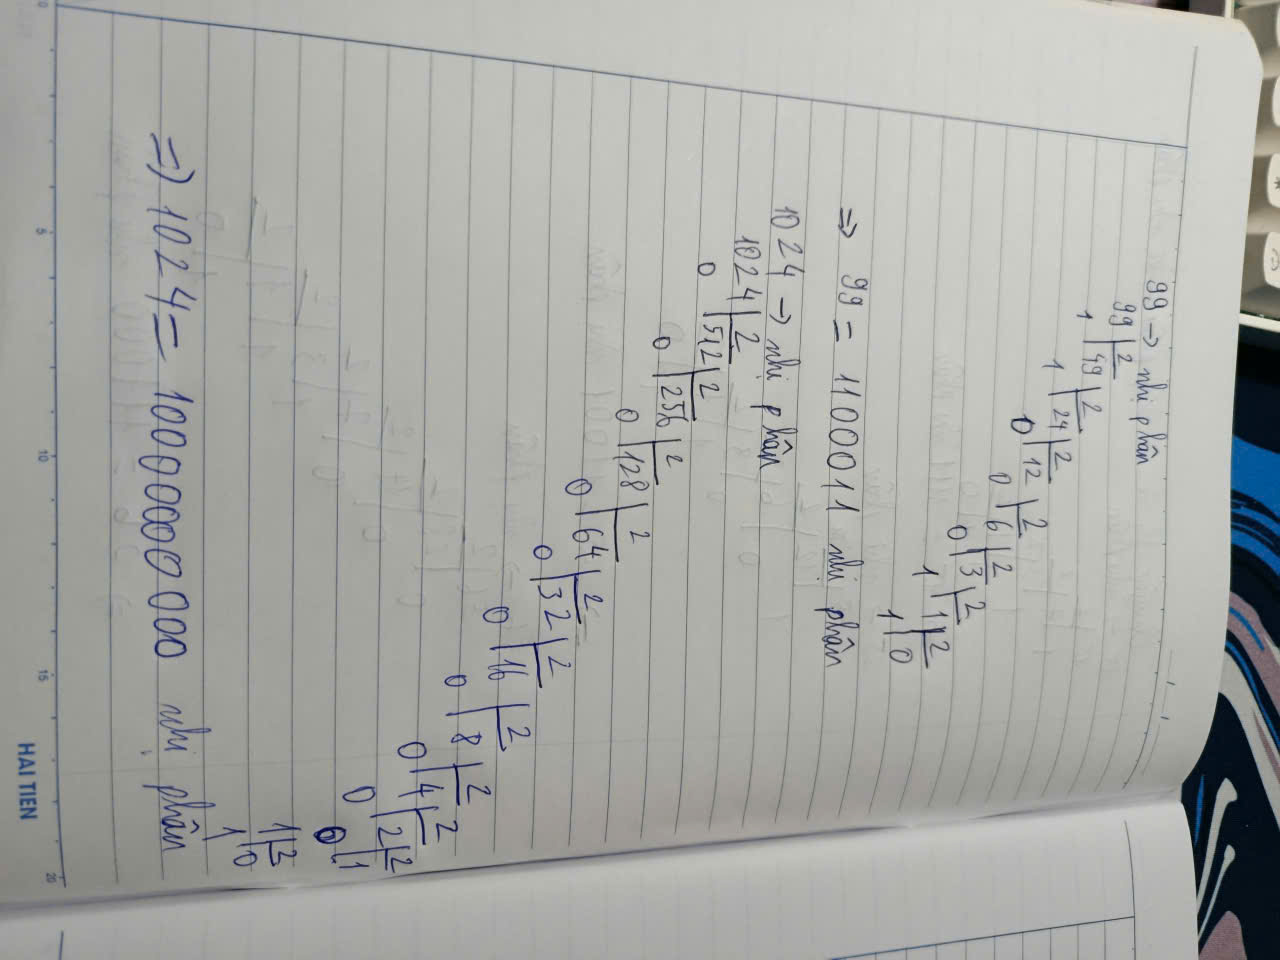 99 → nhị phân
99 2
1 49 2
1 24 2
0 12 2
0 6 2
0 3 2
1 1 2
1 0
=> 99 = 1100011 nhị phân
1024 → nhị phân
1024 2
0 512 2
0 256 2
0 128 2
0 64 2
0 32 2
0 16 2
0 8 2
0 4 2
0 2 2
0 1
1 2
1 0
=> 1024 = 10000000000 nhị phân
0 5 10 15 20
HAI TIEN